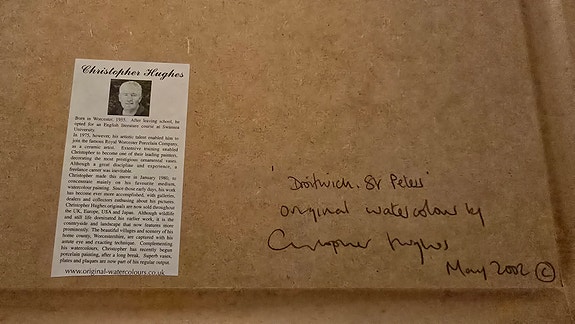 Christopher Hughes
Born in Worcester, 1955. After leaving school, he
opted for an English literature course at Swansea
University.
In 1975, however, his artistic talent enabled him to
join the famous Royal Worcester Porcelain Company,
as a ceramic artist. Extensive training enabled
Christopher to become one of their leading painters,
decorating the most prestigious ornamental vases.
Although a great discipline and experience, a
freelance career was inevitable.
Christopher made this move in January 1980, to
concentrate mainly on his favourite medium,
watercolour painting. Since those early days, his work
has become ever more accomplished, with galleries,
dealers and collectors enthusing about his pictures.
Christopher Hughes originals are now sold throughout
the UK, Europe, USA and Japan. Although wildlife
and still life dominated his earlier work, it is the
countryside and landscape that now features more
prominently. The beautiful villages and scenery of his
home county, Worcestershire, are captured with his
astute eye and exacting technique. Complementing
his watercolours, Christopher has recently begun
porcelain painting, after a long break. Superb vases,
plates and plaques are now part of his regular output.
www.original-watercolours.co.uk
'Droitwich. St Peters'
original watercolour by
Christopher Hughes
May 2002 ©